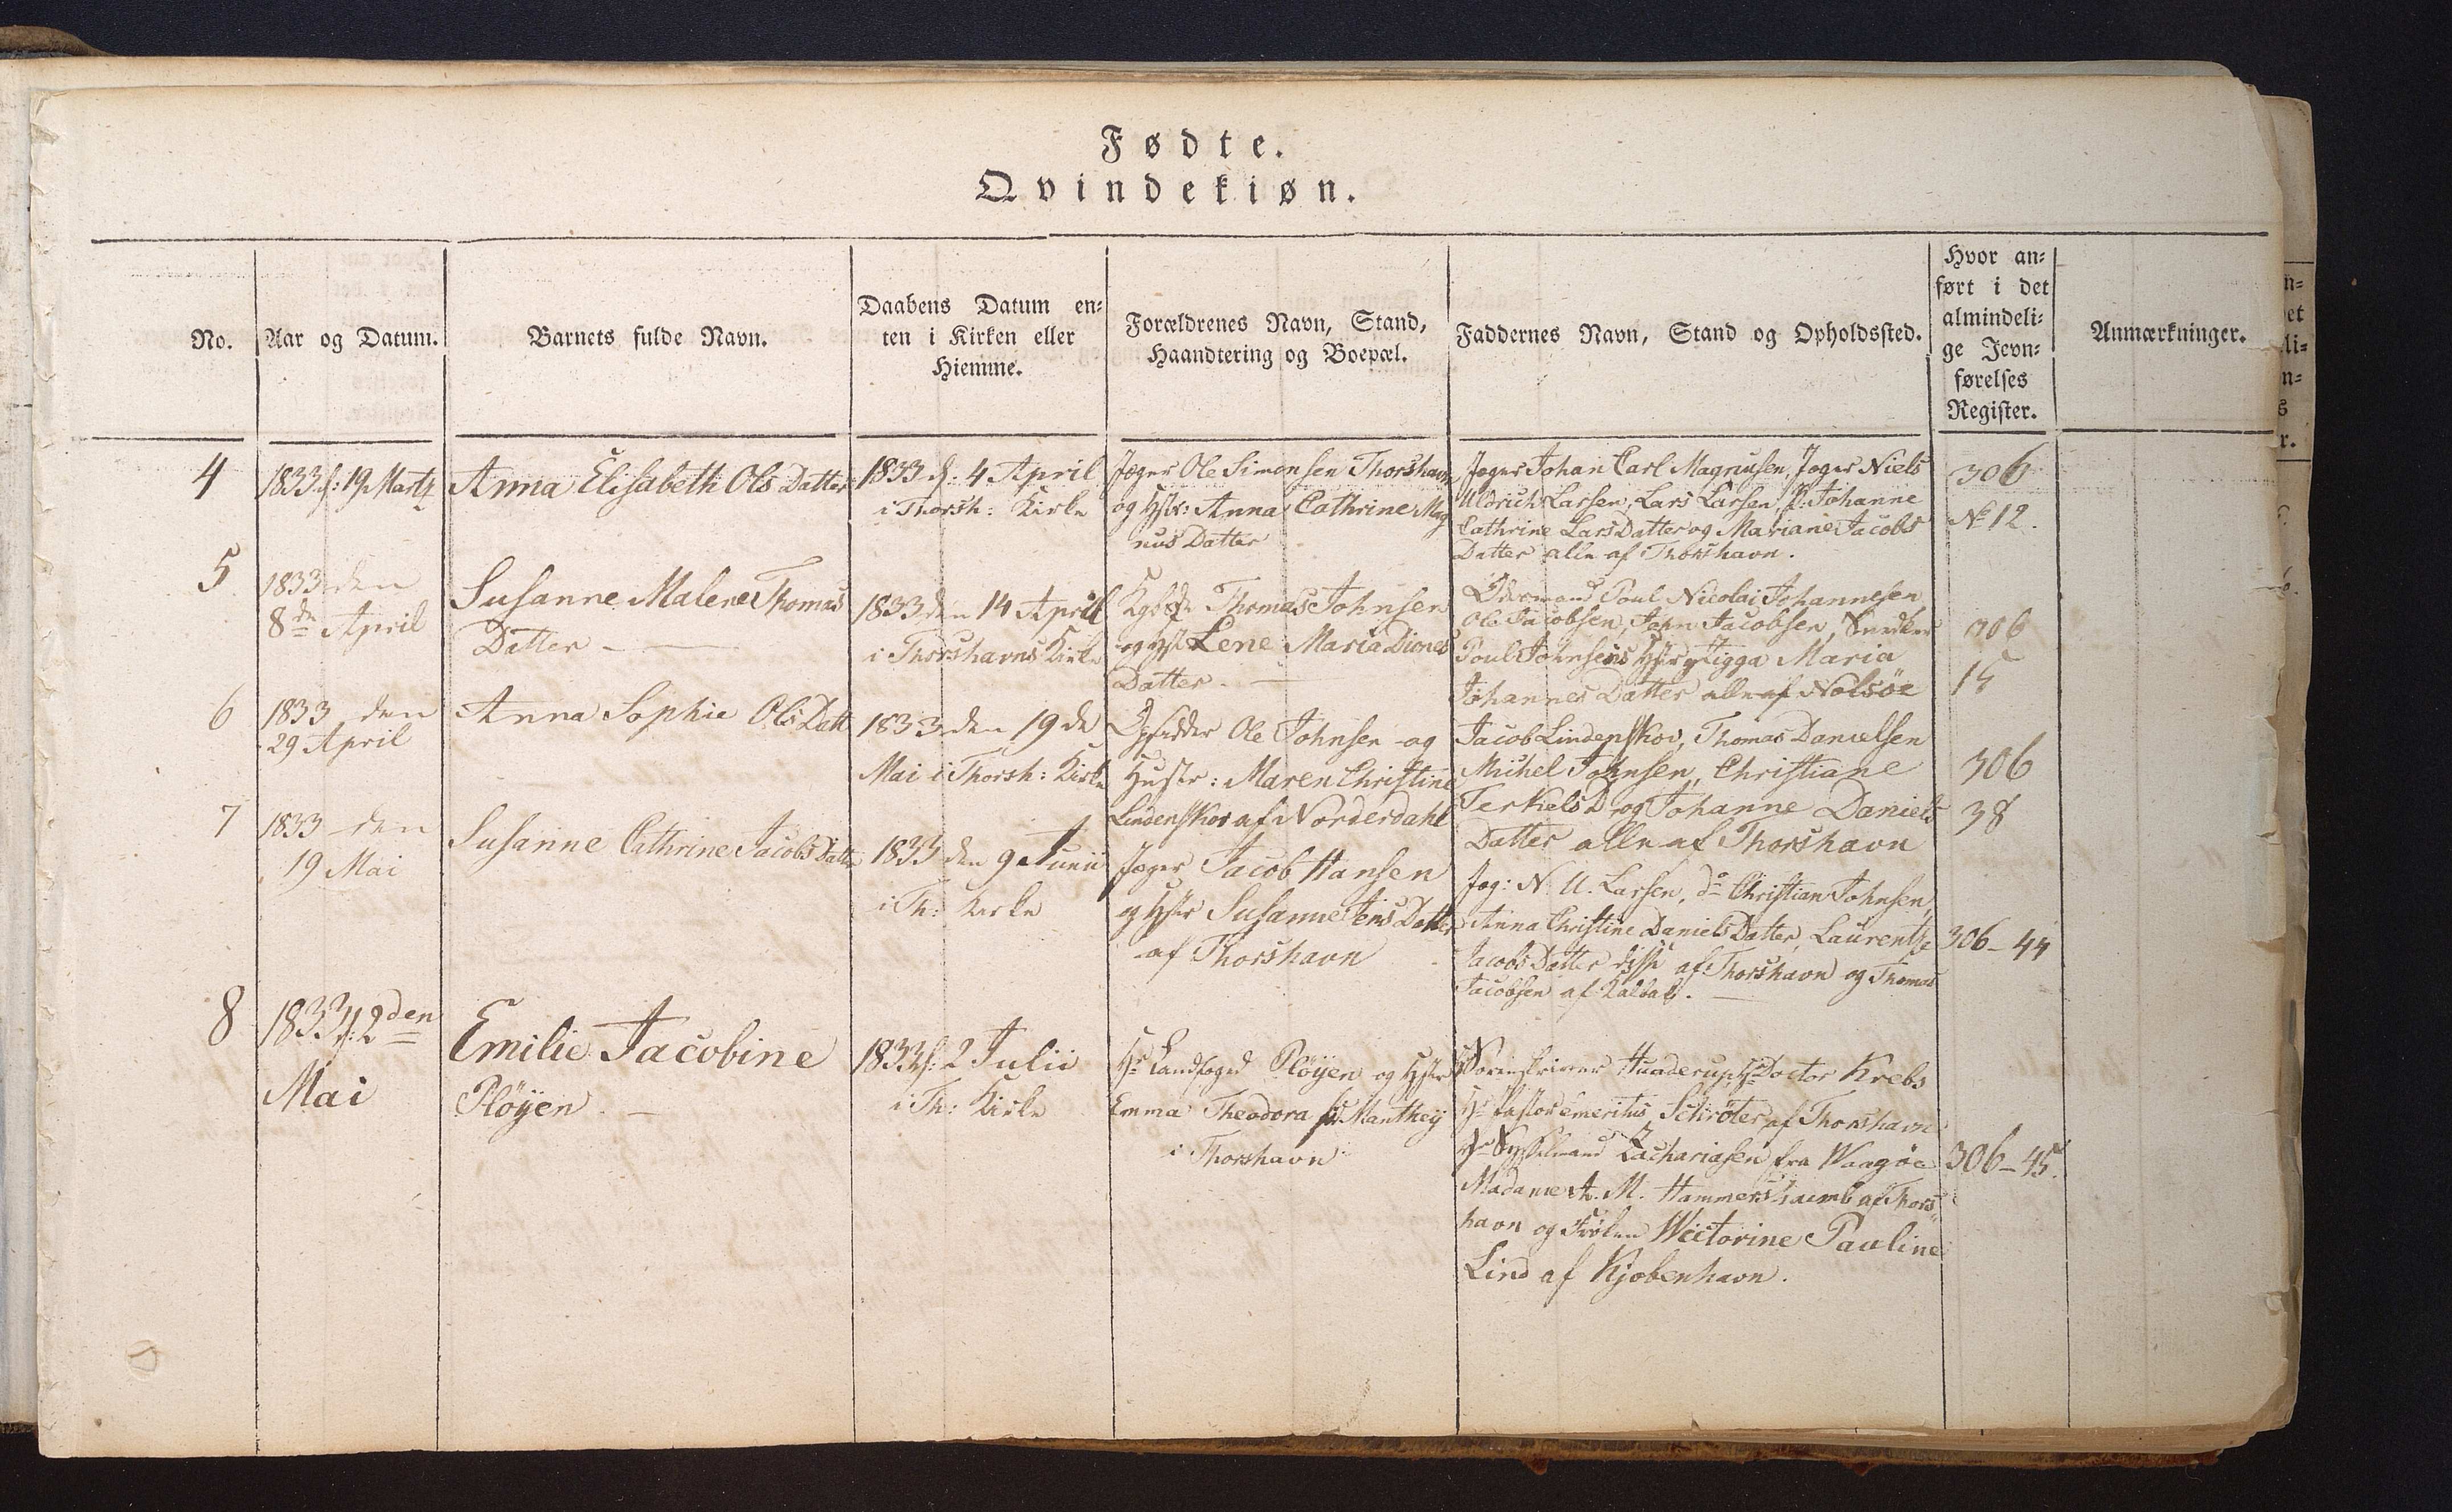 Fødte.
Qvindekiøn.
No.
Aar og Datum.
Barnets fulde Navn.
Daabens Datum en-
ten i Kirken eller
Hiemme.
Forældrenes Navn, Stand,
Haandtering og Boepæl.
Faddernes Navn, Stand og Opholdssted.
Hvor an-
ført i det
almindeli-
ge Jevn-
førelses
Register.
Anmærkninger.
4
1833 d: 19 Martz
Anna Elisabeth Ols Datter
1833 d: 4 April
i Thorsh: Kirke
Jæger Ole Simonsen Thorshavn
og Hstr: Anna Cathrine Mag
nus Datter
Jæger Johan Carl Magnusen, Jæger Niels
Uldrich Larsen, Lars Larsen, P: Johanne
Cathrine LarsDatter og Mariane Jacobs
Datter alle af Thorshavn.
306
No 12.
5
1833 den
8de April
Susanne Malene Thomas
Datter
1833 den 14 April
i Thorshavns Kirke
Thomas Johnsen
og Hst Lene Maria Diones
Datter
Poul Nicolai Johannesen
Ole Jacobsen, John Jacobsen, Snedker
Poul Johnsens Hstr Zigga Maria
Johannes Datter alle af Nolsöe
306
15
6
1833 den
29 April
Anna Sophie Ols Datt
1833 den 19de
Mai i Thorsh: Kirke
Opsidder Ole Johnsen og
Hustr: Maren Christine
Lindenskov af Norderdahl
Jacob Lindenskov, Thomas Danielsen
Michel Johnsen, Christiane
Terkels D og Johanne Daniels
Datter alle af Thorshavn
306
38
7
1833 den
19 Mai
Susanne Cathrine Jacobs Datter
1833 den 9 Junii
i Th: Kirke
Jæger Jacob Hansen
og Hstr Susanne Jens Datter
af Thorshavn
Jæg: N. U. Larsen, do Christian Johnsen,
Anna Christine Daniels Datter, Laurentze
Jacobs Datter disse af Thorshavn og Thomas
Jacobsen af Kalbak.
306-44
8
1833 d: 2den
Mai
Emilie Jacobine
Plöyen.
1833 d: 2 Julii
i Th: Kirke
Hr Landfoged Plöyen og Hstr
Emma Theodora f: Manthey
i Thorshavn
Sorenskriver Hunderup, Hr Doctor Krebs
Hr Pastor emeritus Schröter af Thorshavn
Hr Sysselmand Zachariasen fra Waagöe
Madame A. M. Hammershaimb af Thors"
havn og Frølen Wictorine Pauline
Lind af Kjøbenhavn.
306-45.